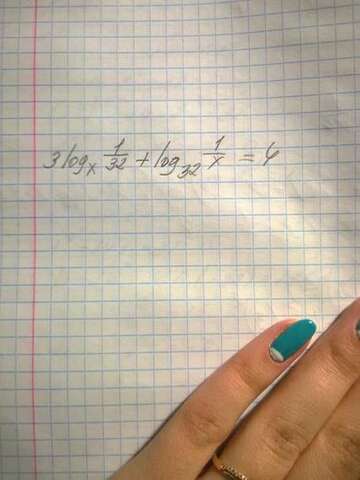 3 log_x 1/32 + log_32 1/x = 4